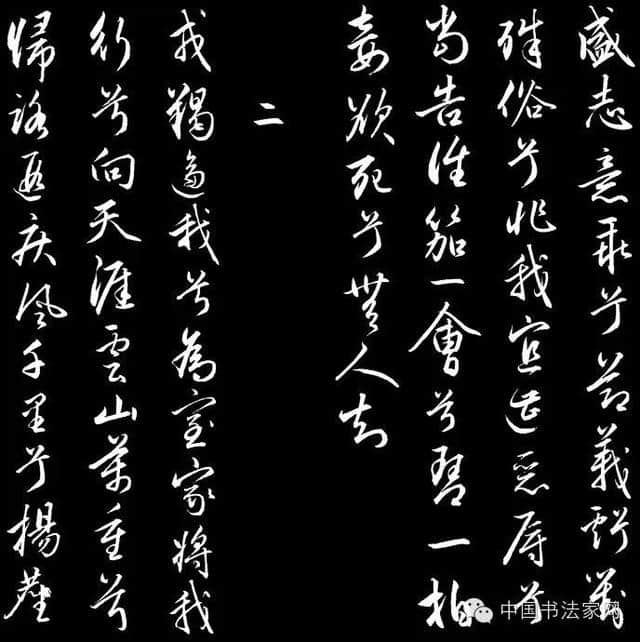 盛志意乖兮節義虧對
殊俗兮非我宜遭惡辱兮
當告誰笳一會兮琴一拍
妾欲死兮無人知
二
戎羯逼我兮為室家將我
行兮向天涯雲山萬重兮
歸路遐疾風千里兮揚塵
中国书法家网